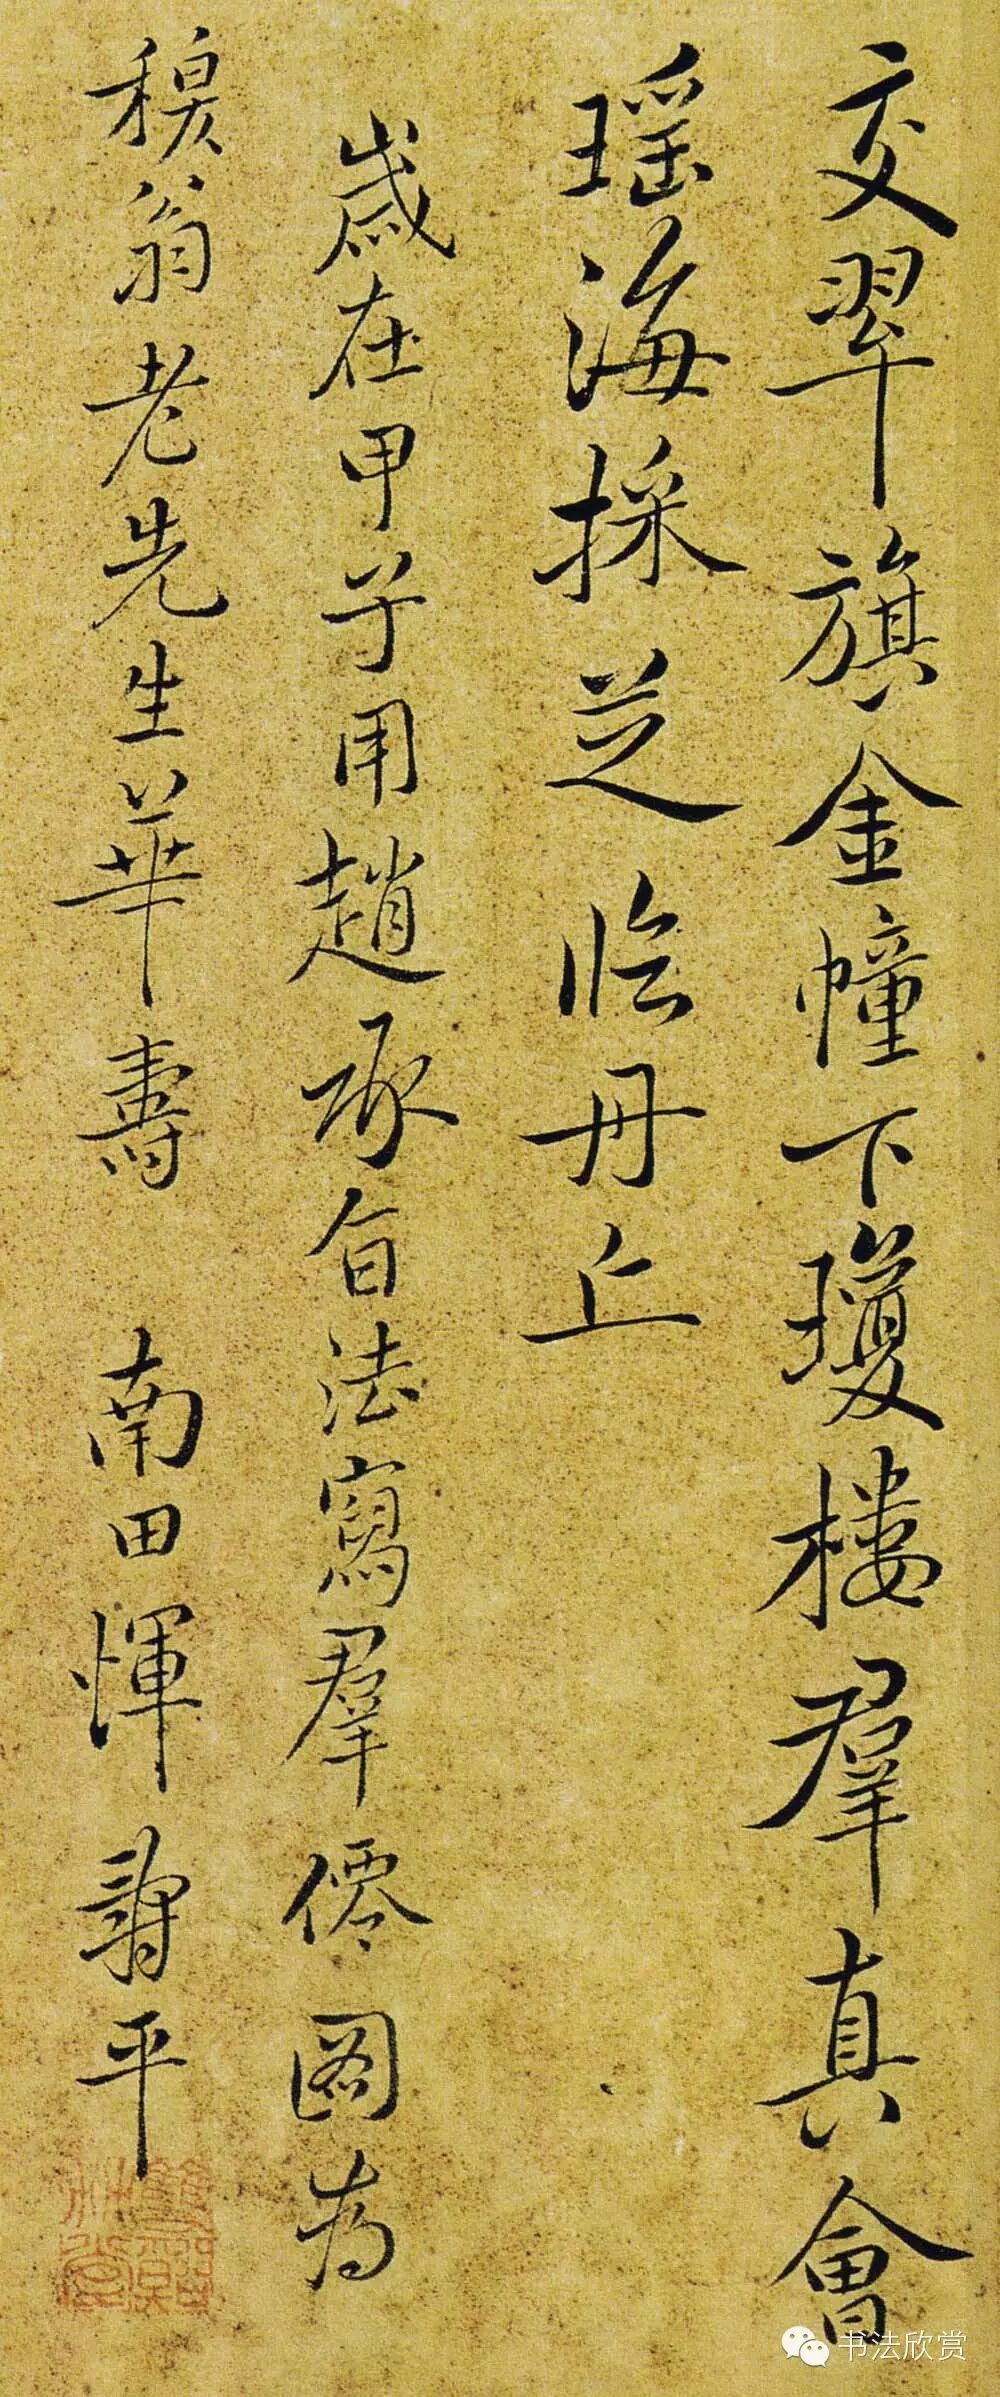 交翠旗金幢下瓊樓羣真會
瑶海採芝臨丹丘
歲在甲子用趙承旨法寫羣僊圖為
穉翁老先生華壽 南田惲壽平
书法欣赏